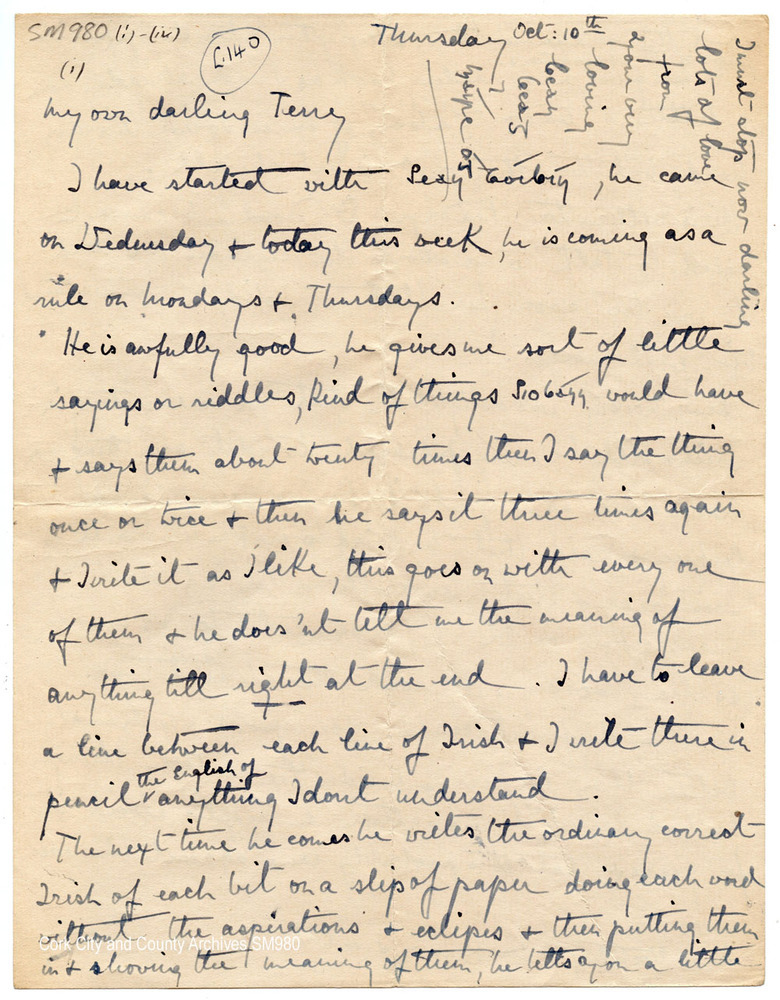 SM980 (i)-(iv)
L.140
(i)
Thursday Oct: 10th
My own darling Terry
I have started with , he came
on Wednesday & today this week, he is coming as a
rule on Mondays & Thursdays.
He is awfully good, he gives me sort of little
sayings or riddles, kind of things would have
& says them about twenty times then I say the thing
once or twice & then he says it three times again
& I write it as I like, this goes on with every one
of them & he does'nt tell me the meaning of
anything till right at the end. I have to leave
a line between each line of Irish & I write there in
pencil the English of anything I dont understand.
The next time he comes he writes the ordinary correct
Irish of each bit on a slip of paper doing each word
without the aspirations & eclipses & then putting them
in & showing the meaning of them, he tells you a little
I must stop now darling
lots of love
from
your very
loving
Cork City and County Archives SM980